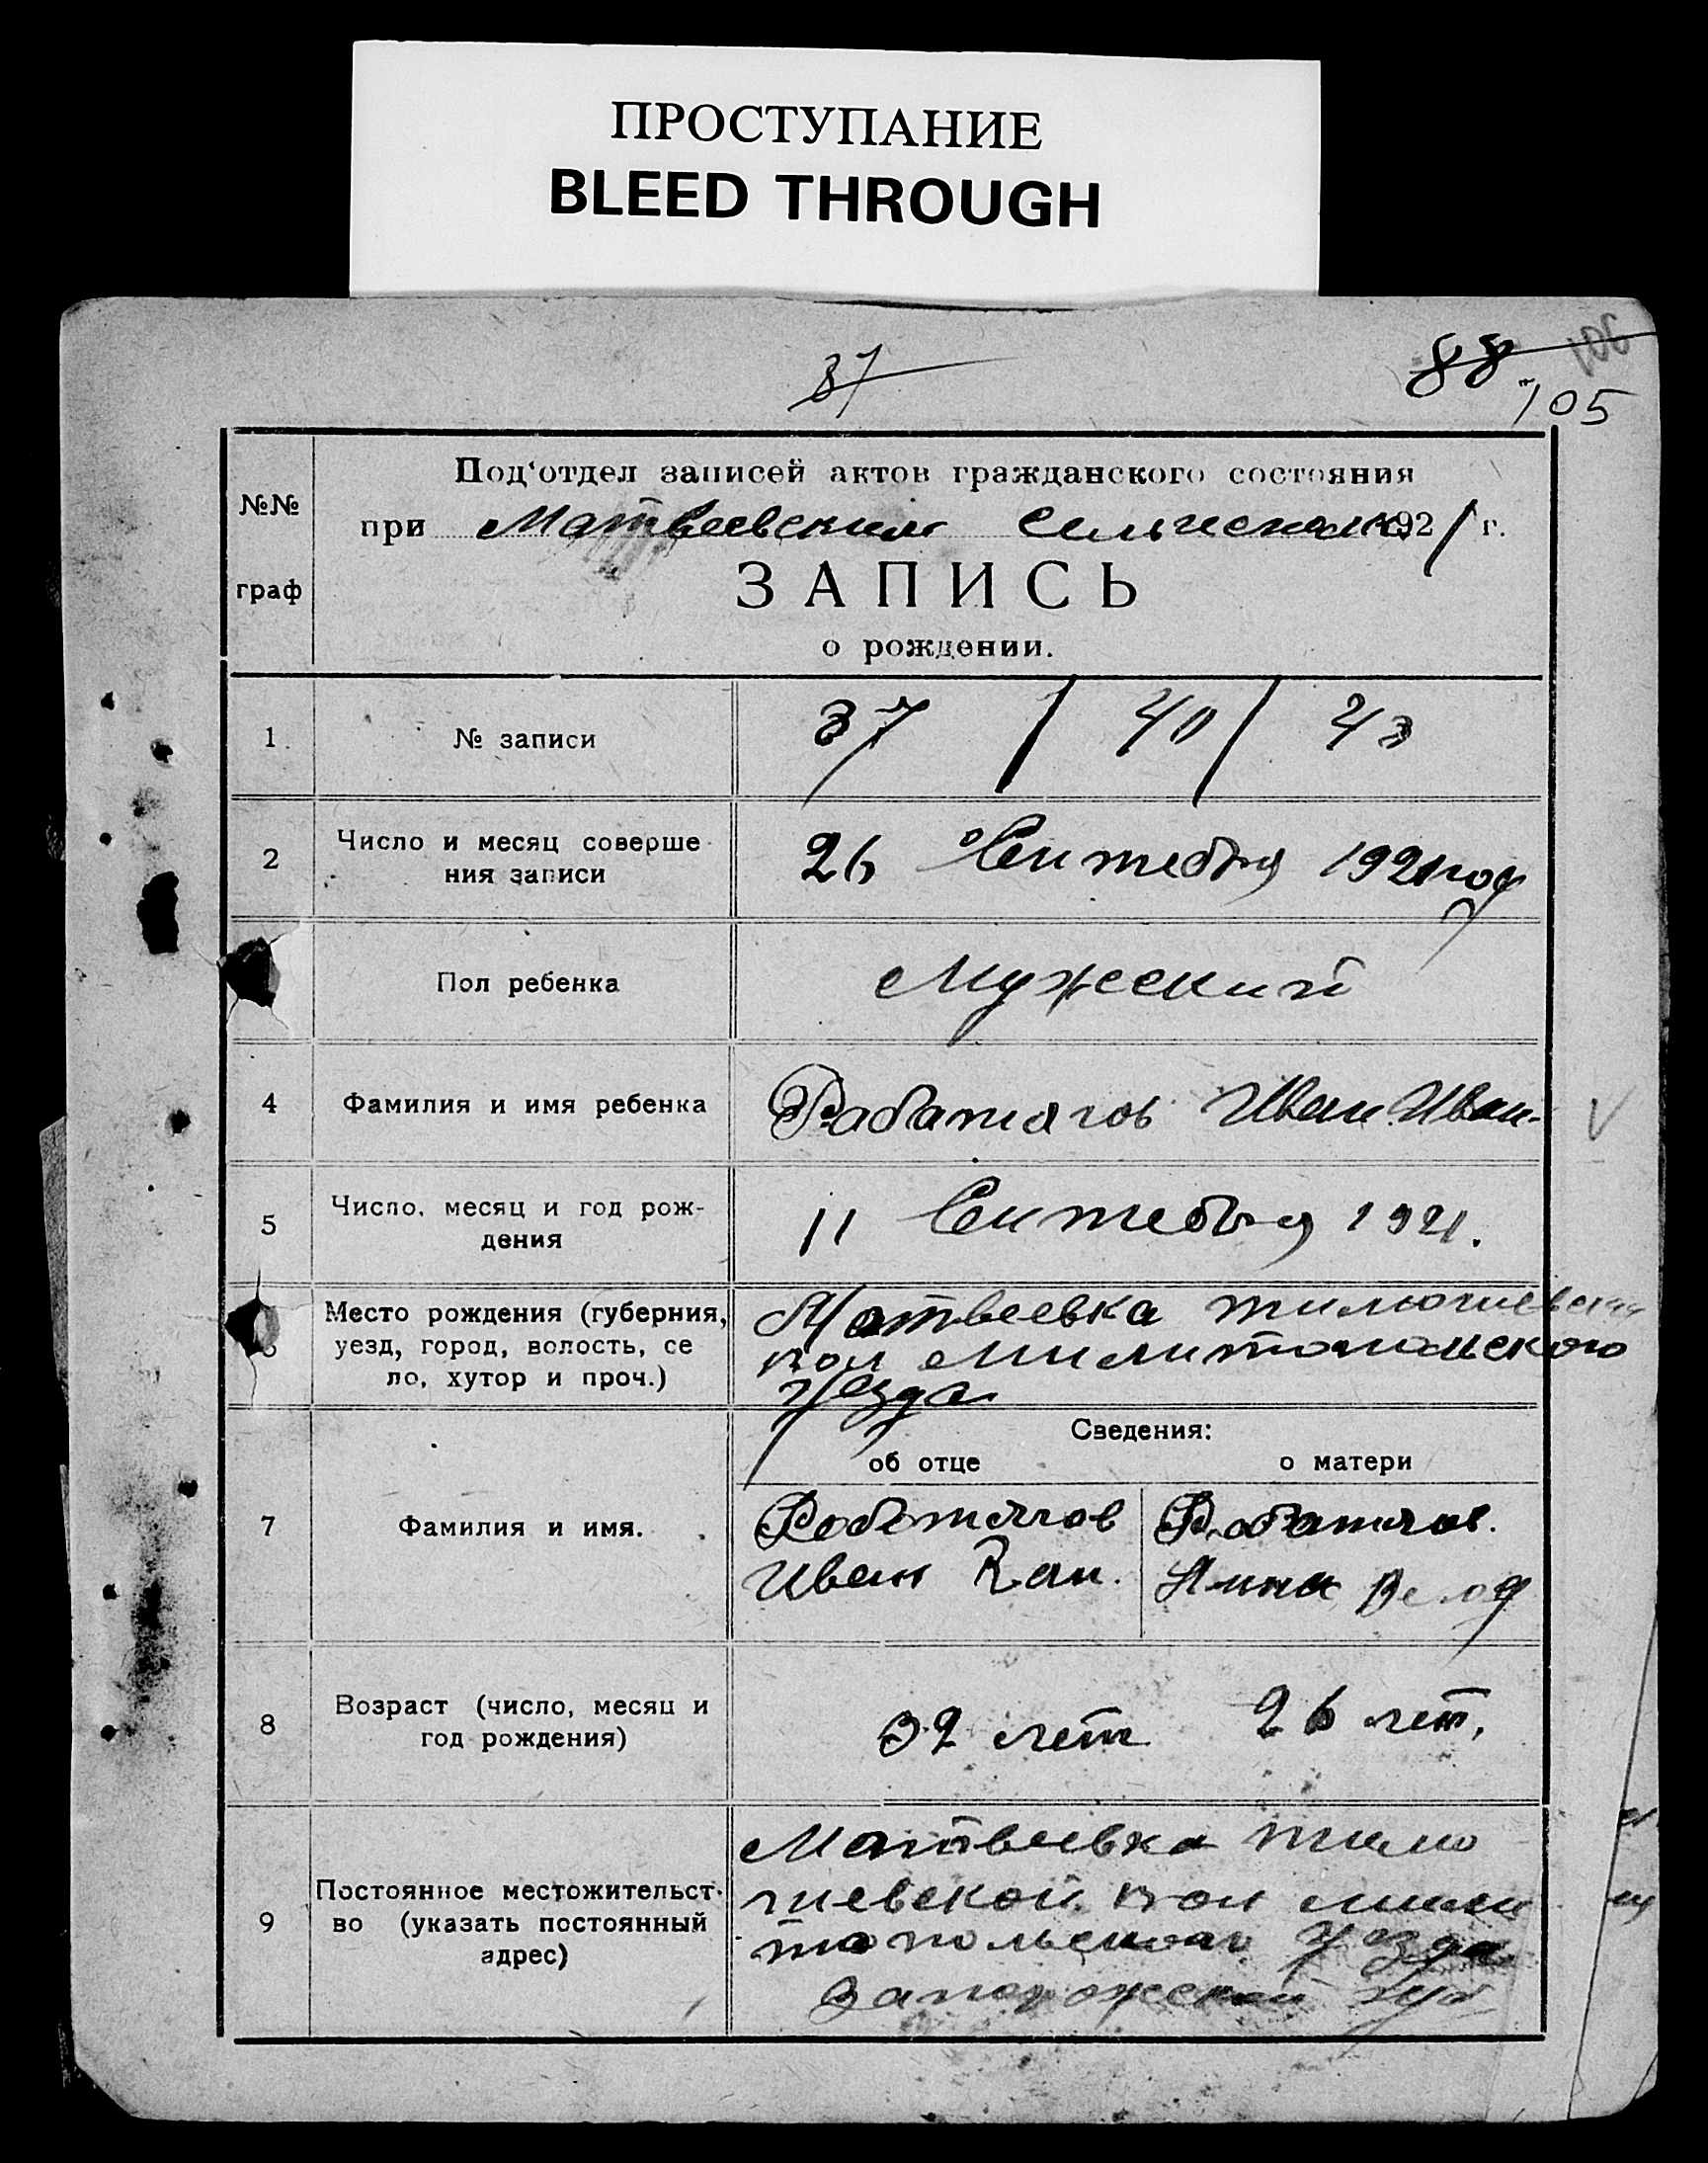 ПРОСТУПАНИЕ
BLEED THROUGH
37
88
106
105
№№
граф
Под'отдел записей актов гражданского состояния
при Матвеевским 1921 г.
ЗАПИСЬ
о рождении.
1 № записи 37 / 40 / 43
2 Число и месяц соверше
ния записи
26 Сентебря 1921 году
Пол ребенка Мужеский
4 Фамилия и имя ребенка Рабатягов Иван Иван-
V
5 Число, месяц и год рож-
дения
11 Сентебря 1921.
6 Место рождения (губерния,
уезд, город, волость, се
ло, хутор и проч.)
Матвеевка
вол Милитопольского
уезда
Сведения:
об отце о матери
7 Фамилия и имя.
Работягов Рабатягов.
Иван Кап. Анна
8 Возраст (число, месяц и
год рождения)
32 лет 26 лет,
9 Постоянное местожительст-
во (указать постоянный
адрес)
Матвеевка тимо
шевской вол мили
топольского уезда
Запорожской губ